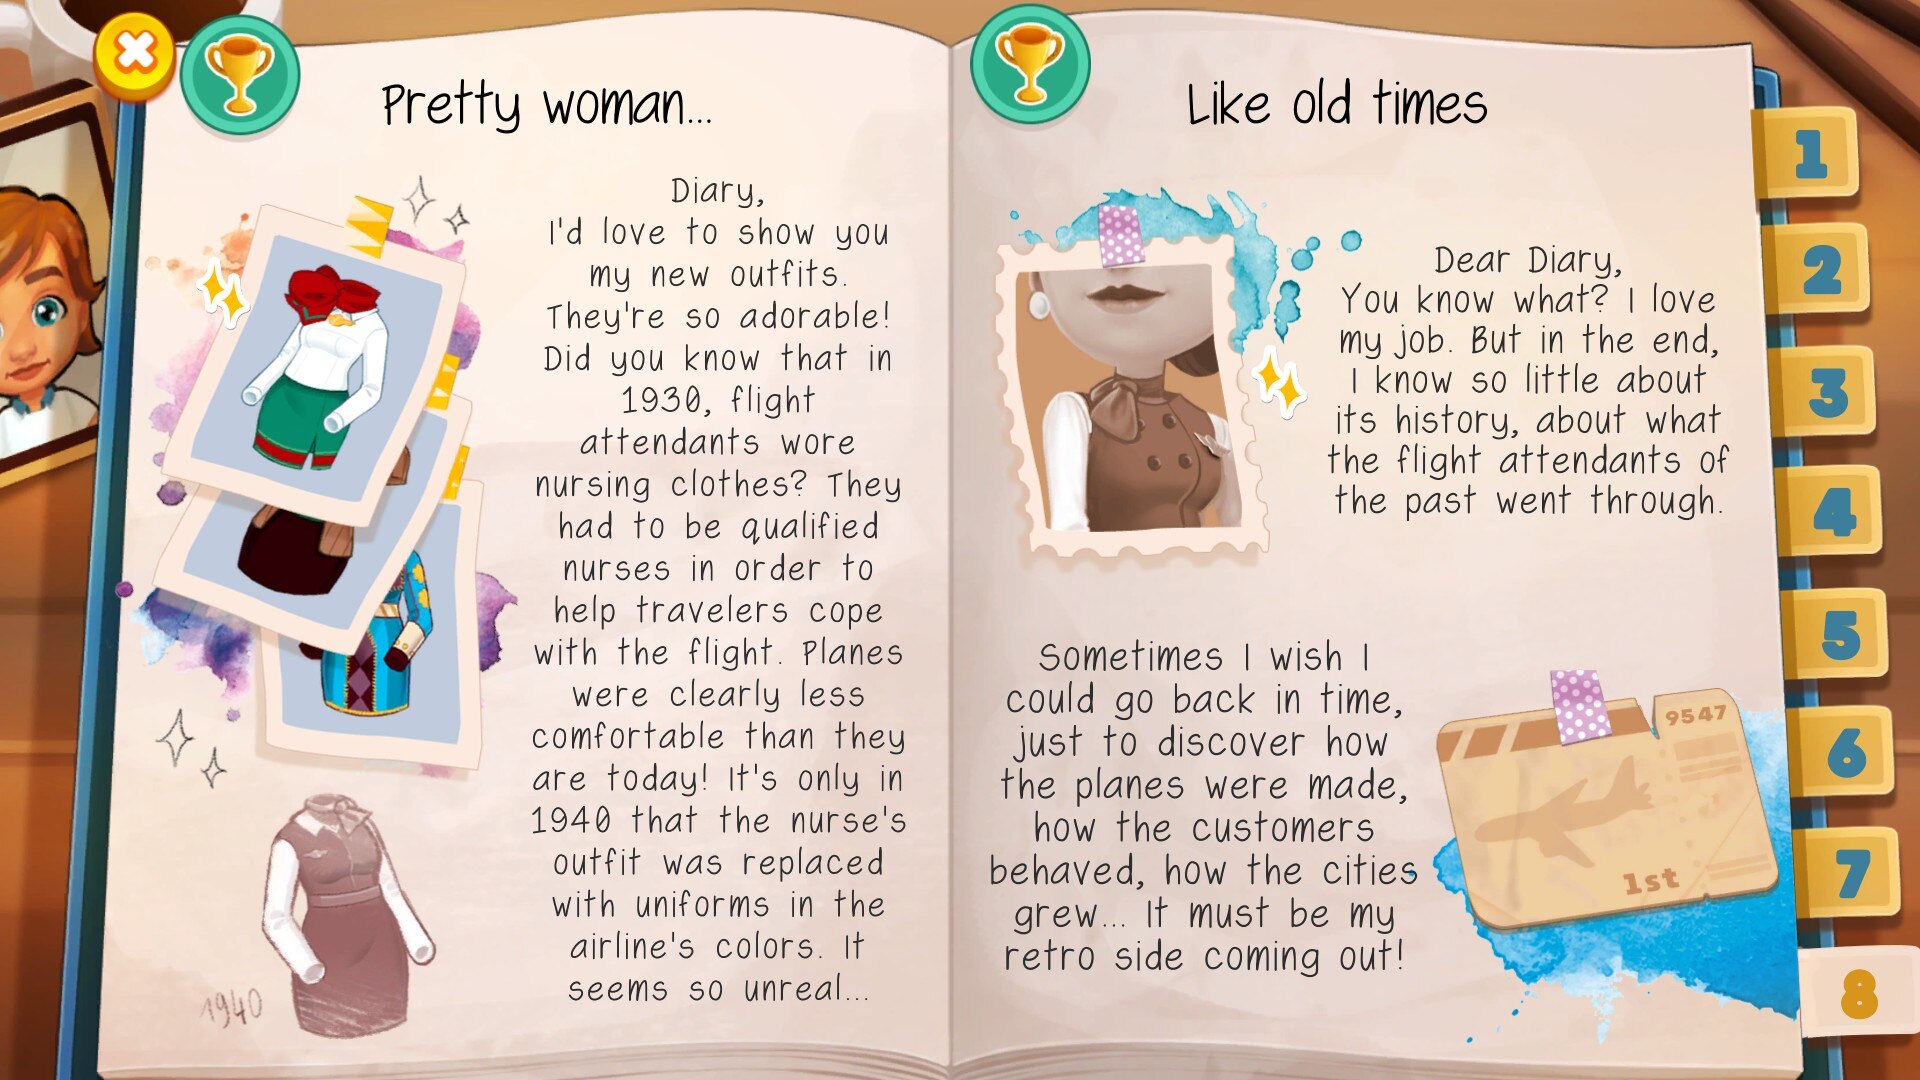 Pretty woman...
Diary,
I'd love to show you
my new outfits.
They're so adorable!
Did you know that in
1930, flight
attendants wore
nursing clothes? They
had to be qualified
nurses in order to
help travelers cope
with the flight. Planes
were clearly less
comfortable than they
are today! It's only in
1940 that the nurse's
outfit was replaced
with uniforms in the
airline's colors. It
seems so unreal...
1940
Like old times
Dear Diary,
You know what? I love
my job. But in the end,
I know so little about
its history, about what
the flight attendants of
the past went through.
Sometimes I wish I
could go back in time,
just to discover how
the planes were made,
how the customers
behaved, how the cities
grew... It must be my
retro side coming out!
9547
1st
1
2
3
4
5
6
7
8